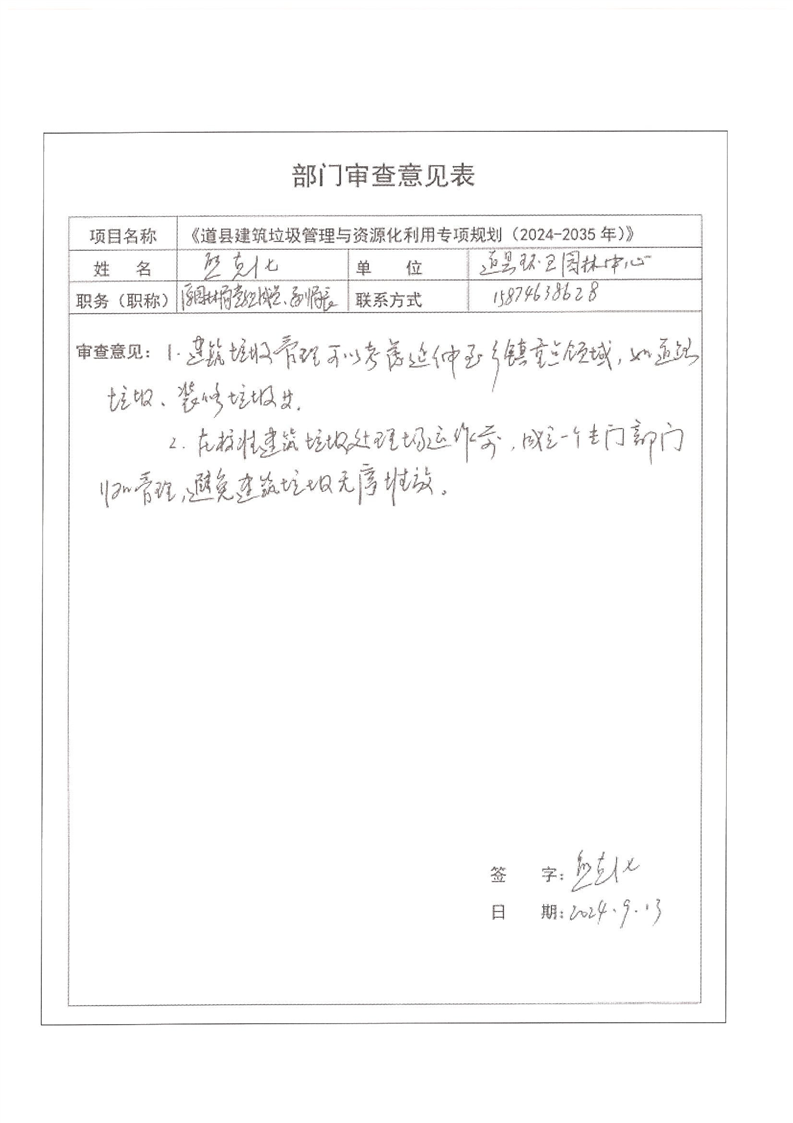 部门审查意见表
项目名称 《道县建筑垃圾管理与资源化利用专项规划（2024-2035 年）》
姓 名 单 位 道县环卫园林中心
职务（职称） 联系方式 15874638628
审查意见：1. 建筑垃圾管理可以考虑延伸至乡镇重点领域，如道路
垃圾、装修垃圾等.
2. 在校准建筑垃圾处理场运作前，成立一个专门部门
归口管理，避免建筑垃圾无序堆放。
签 字：
日 期：2024.9.13